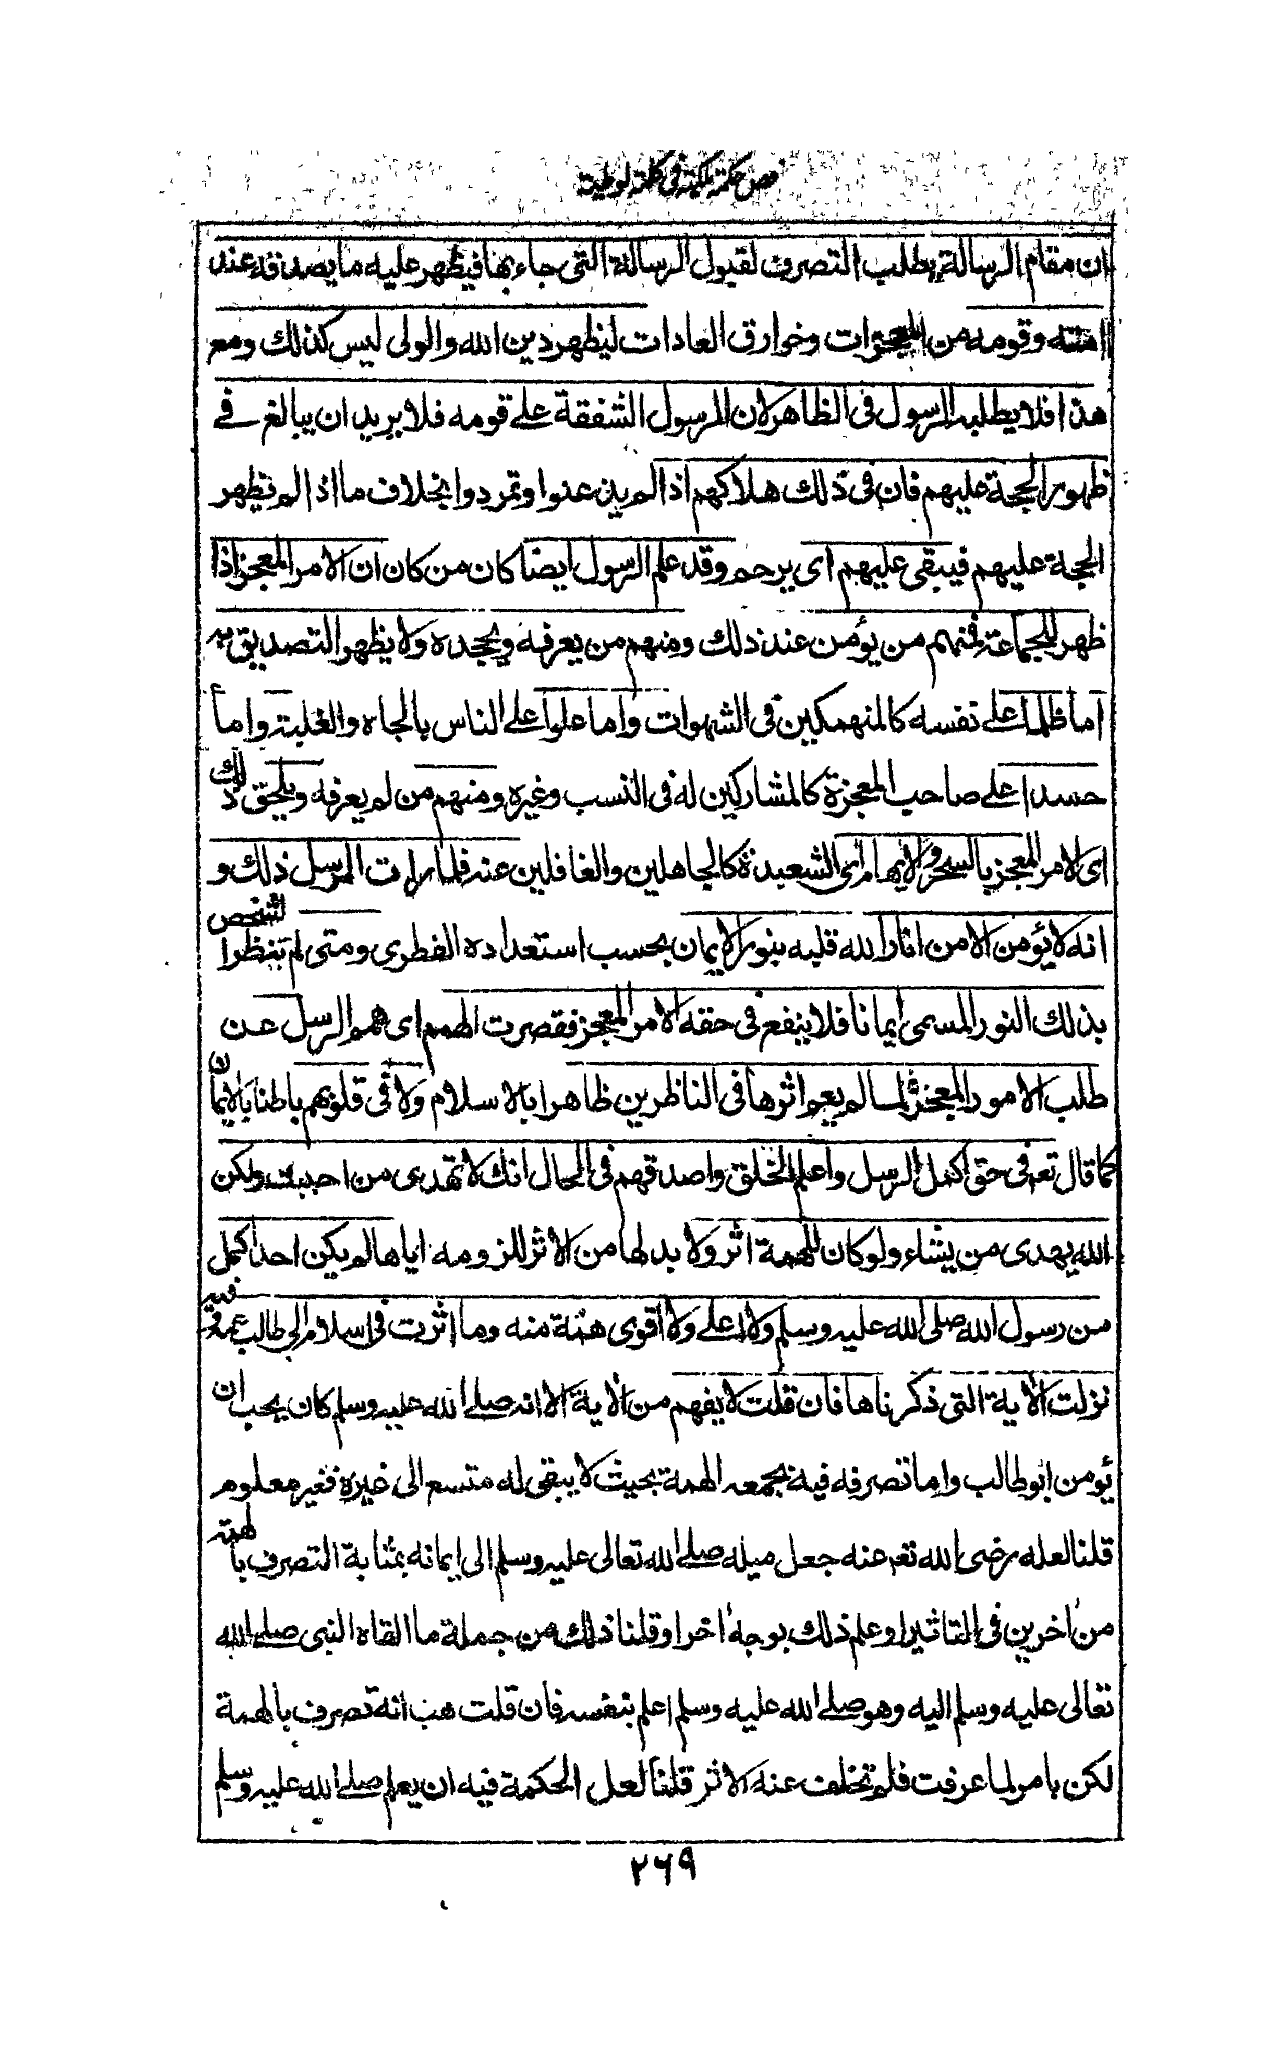 فص حكمة ملكية فى كلمة لوطية
ان مقام الرسالة يطلب التصرف لقبول الرسالة التى جاء بها فيظهر عليه ما يصدقه عند
امته وقومه من المعجزات وخوارق العادات ليظهر دين الله والولى ليس كذلك ومع
هذا فلا يطلبه الرسول فى الظاهر لان للرسول الشفقة على قومه فلا يريد ان يبالغ فى
ظهور الحجة عليهم فان فى ذلك هلاكهم اذا لم يذعنوا وتمردوا بخلاف ما اذا لم تظهر
الحجة عليهم فيبقى عليهم اى يرحم وقد علم الرسول ايضا كان من كان ان الامر المعجز اذا
ظهر للجماعة فمنهم من يؤمن عند ذلك ومنهم من يعرفه ويجحده ولا يظهر التصديق به
اما ظلما على نفسه كالمنهمكين فى الشهوات واما علوا على الناس بالجاه والغلبة واما
حسدا على صاحب المعجزة كالمشاركين له فى النسب وغيره ومنهم من لم يعرفه ويلحق ذلك
اى الامر المعجز بالسحر والايهام اى الشعبدة كالجاهلين والغافلين عنه فلما رات الرسل ذلك و
انه لا يؤمن الا من انار الله قلبه بنور الايمان بحسب استعداده الفطرى ومتى لم ينظر الشخص
بذلك النور المسمى ايمانا فلا ينفع فى حقه الامر المعجز فقصرت الهمم اى همم الرسل عن
طلب الامور المعجزة لما لم يعم اثرها فى الناظرين ظاهرا بالاسلام ولا فى قلوبهم باطنا بالايمان
كما قال تعه فى حق اكمل الرسل واعلم الخلق واصدقهم فى الحال انك لا تهدى من احببت ولكن
الله يهدى من يشاء ولو كان للهمة اثر ولا بد لها من الاثر للزومه اياها لم يكن احد اكمل
من رسول الله صلى الله عليه وسلم ولا اعلى ولا اقوى همة منه وما اثرت فى اسلام ابى طالب عمه وفيه
نزلت الآية التى ذكرناها فان قلت لا يفهم من الآية الا انه صلى الله عليه وسلم كان يحب ان
يؤمن ابو طالب واما تصرفه فيه بجمعه الهمة بحيث لا يبقى له متسع الى غيره فغير معلوم
قلنا لعله رضى الله تعه عنه جعل ميله صلى الله تعالى عليه وسلم الى ايمانه بمثابة التصرف بالهمة
من آخرين فى التاثير او علم ذلك بوجه آخر او قلنا ذلك من جملة ما القاه النبى صلى الله
تعالى عليه وسلم اليه وهو صلى الله عليه وسلم اعلم بنفسه فان قلت هب انه تصرف بالهمة
لكن بامر لما عرفت فلم تخلف عنه الاثر قلنا لعل الحكمة فيه ان يعلم صلى الله عليه وسلم
٢٦٩